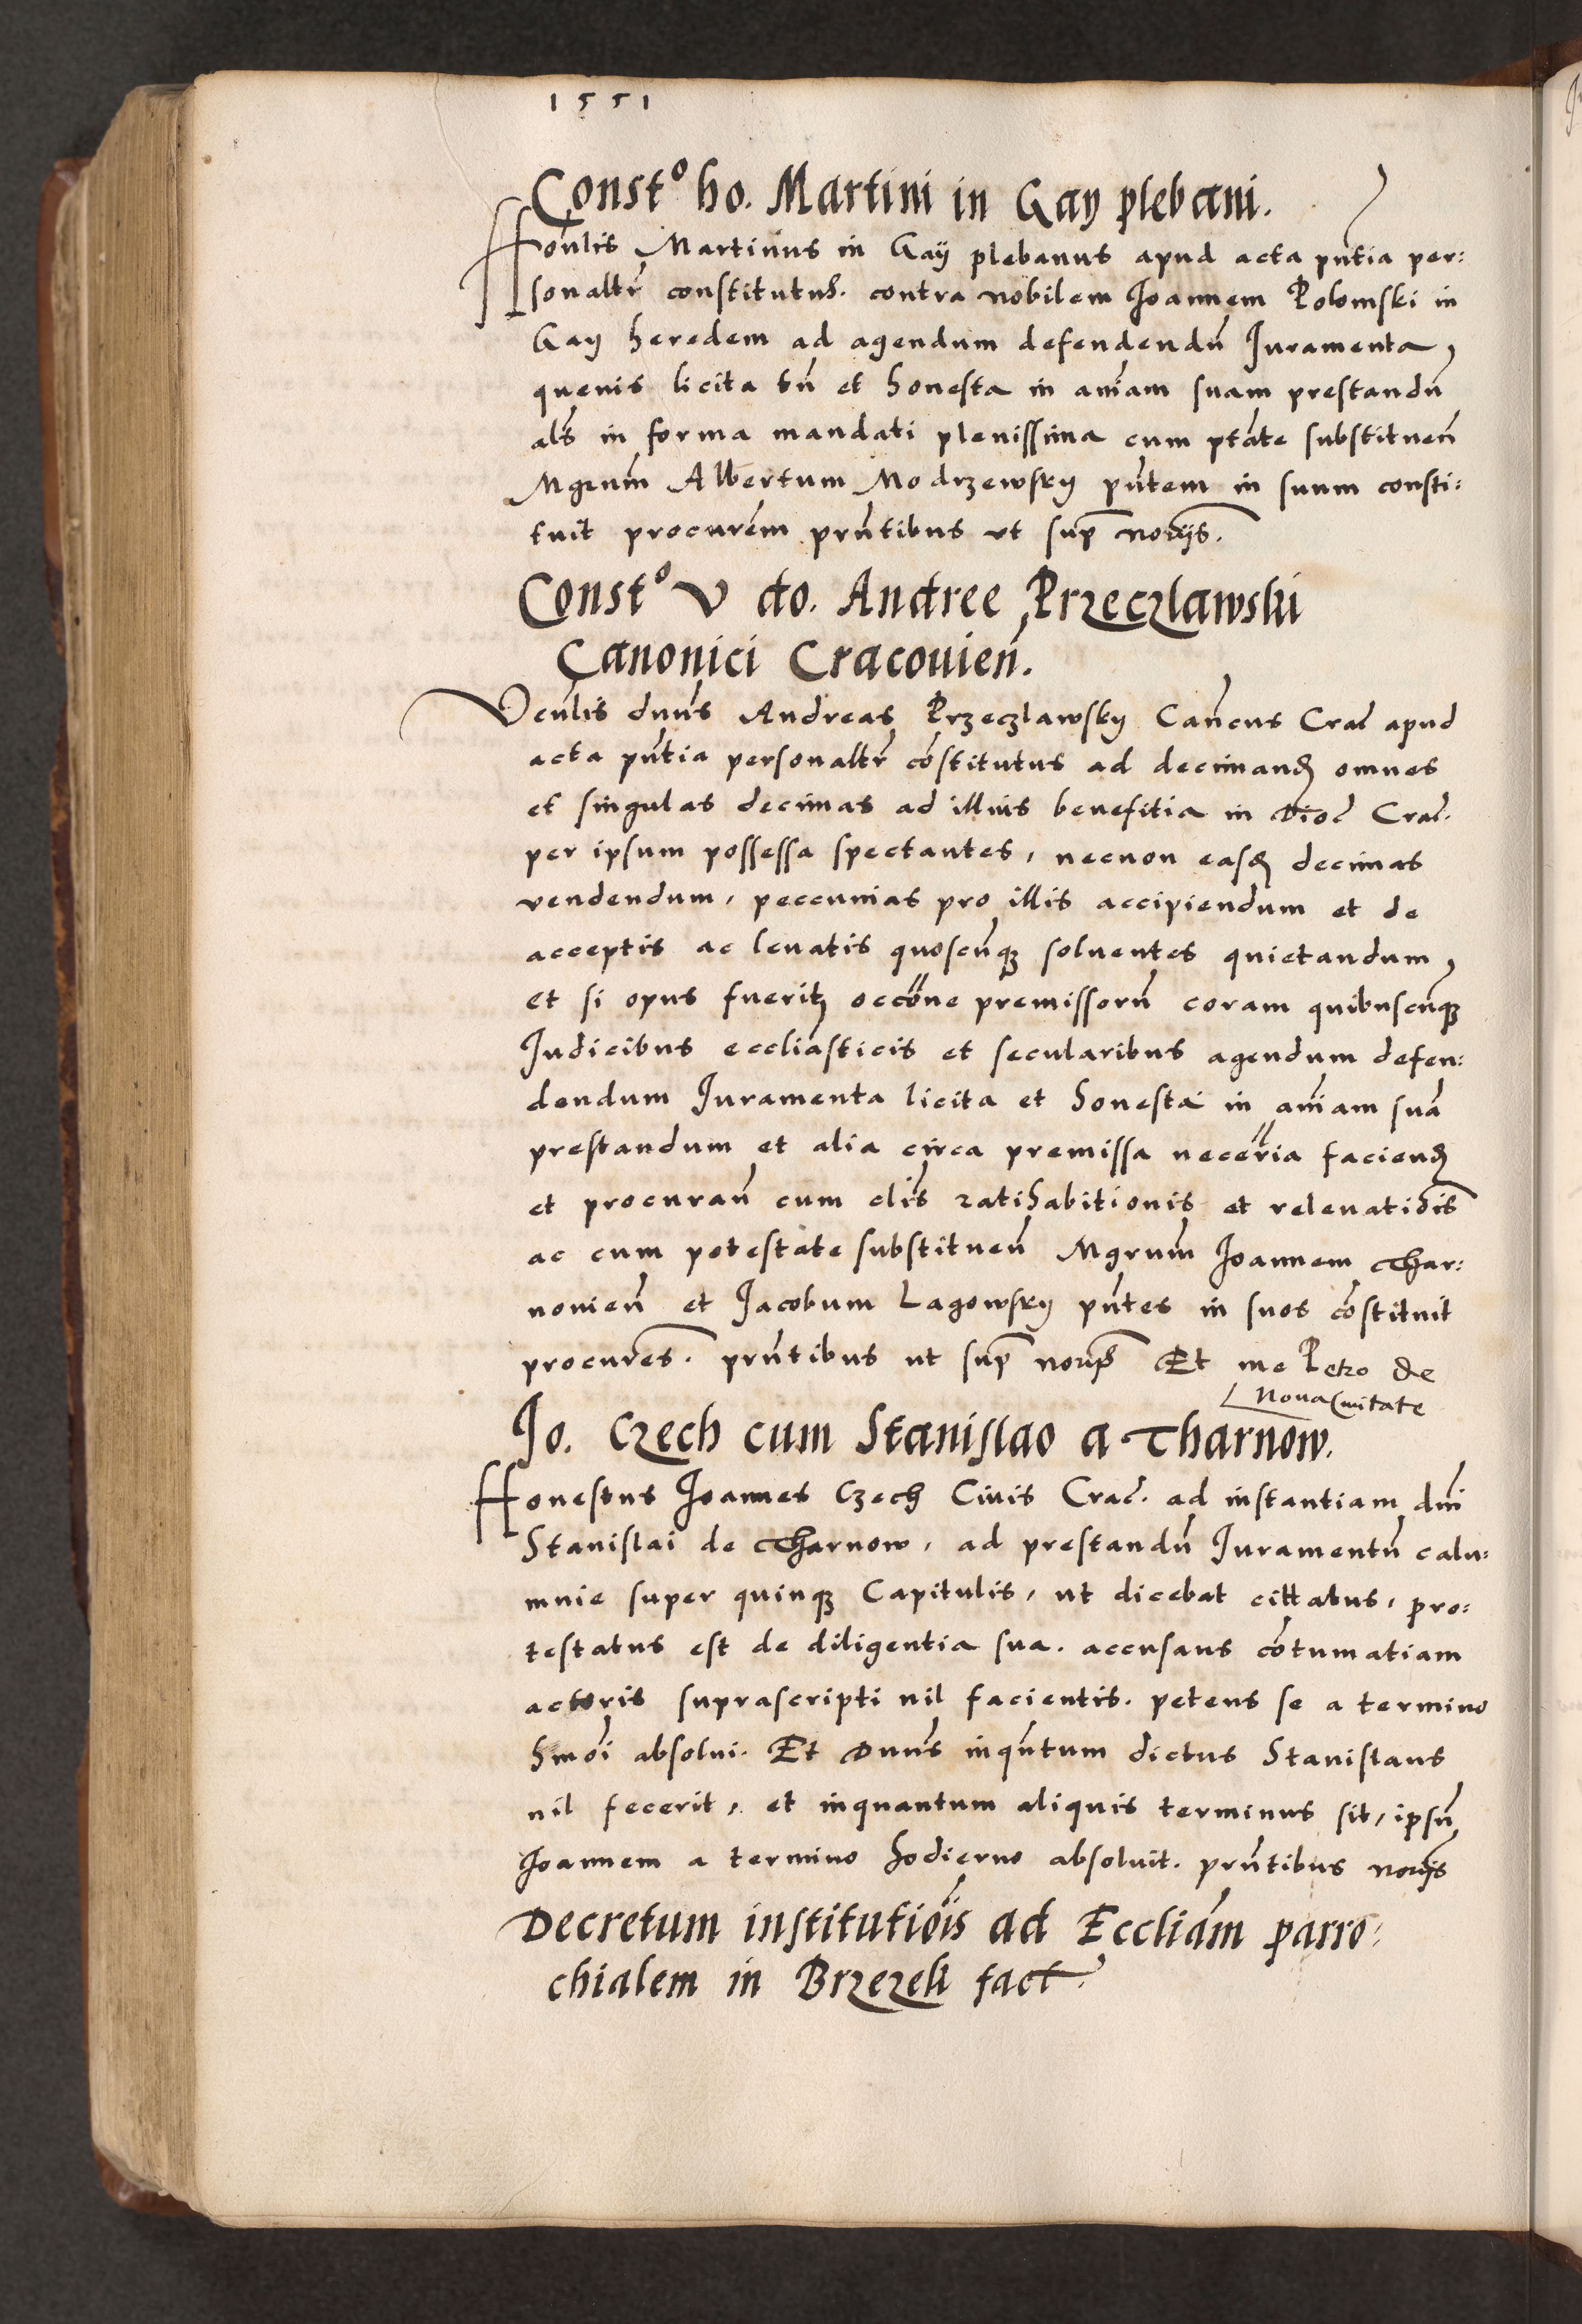 1551
Constº ho. Martini in Gay plebani.
Honlis Martinus in Gaÿ plebanus apud acta pntia per:
sonaltr constitutus. contra nobilem Joannem Polomski in
Gaÿ heredem ad agendum defendendū Juramenta,
quenis licita tn̄ et honesta in aniam suam prestandū
als in forma mandati plenissima cum ptate substituen̄
Mgrum Albertum Modrzewskÿ pntem in suum consti:
tuit procurem prntibus ut sup̄ norÿs.
Constº V do. Andree Przeczlawski
Canonici Cracouien̄.
Vcnlis dnus Andreas Przeczlawskÿ Cancus Crac̄ apud
acta pntia personaltr cōstitutus ad decimand omnes
et singulas decimas ad illius benefitia in Dioc̄ Crac̄.
per ipsum possessa spectantes, necnon easd decimas
vendendum, peccunias pro illis accipiendum et de
acceptis ac leuatis quoscunqȝ soluentes quietandum,
et si opus fuerit, occōne premissorū coram quibuscunqȝ
Judicibus eccliasticis et secularibus agendum defen:
dendum Juramenta licita et honesta in aniam suā
prestandum et alia circa premissa neceria faciend
et procuran̄ cum clis ratihabitionis et releuatiōis
ac cum potestate substituen̄ Mgrum Joannem Thar:
nouien̄ et Jacobum Lagowskÿ pntes in suos cōstituit
procures. prntibus ut sup̄ norÿs Et me Petro de
Noua Ciuitate
Jo. Czech cum Stanislao a Tharnow.
Honestus Joannes Czech Ciuis Crac̄. ad instantiam dni
Stanislai de Tharnow, ad prestandū Juramentū calu:
mnie super quinqȝ Capitulis, ut dicebat cittatus, pro:
testatus est de diligentia sua. accusans cōtumatiam
actoris suprascripti nil facientis. petens se a termino
hmōi absolui. Et Dnus inqntum dictus Stanislaus
nil fecerit, et inquantum aliquis terminus sit, ipsū
Joannem a termino hodierno absoluit. prntibus norÿs
Decretum institutiōis ad Eccliam parro:
chialem in Brzezek fact.